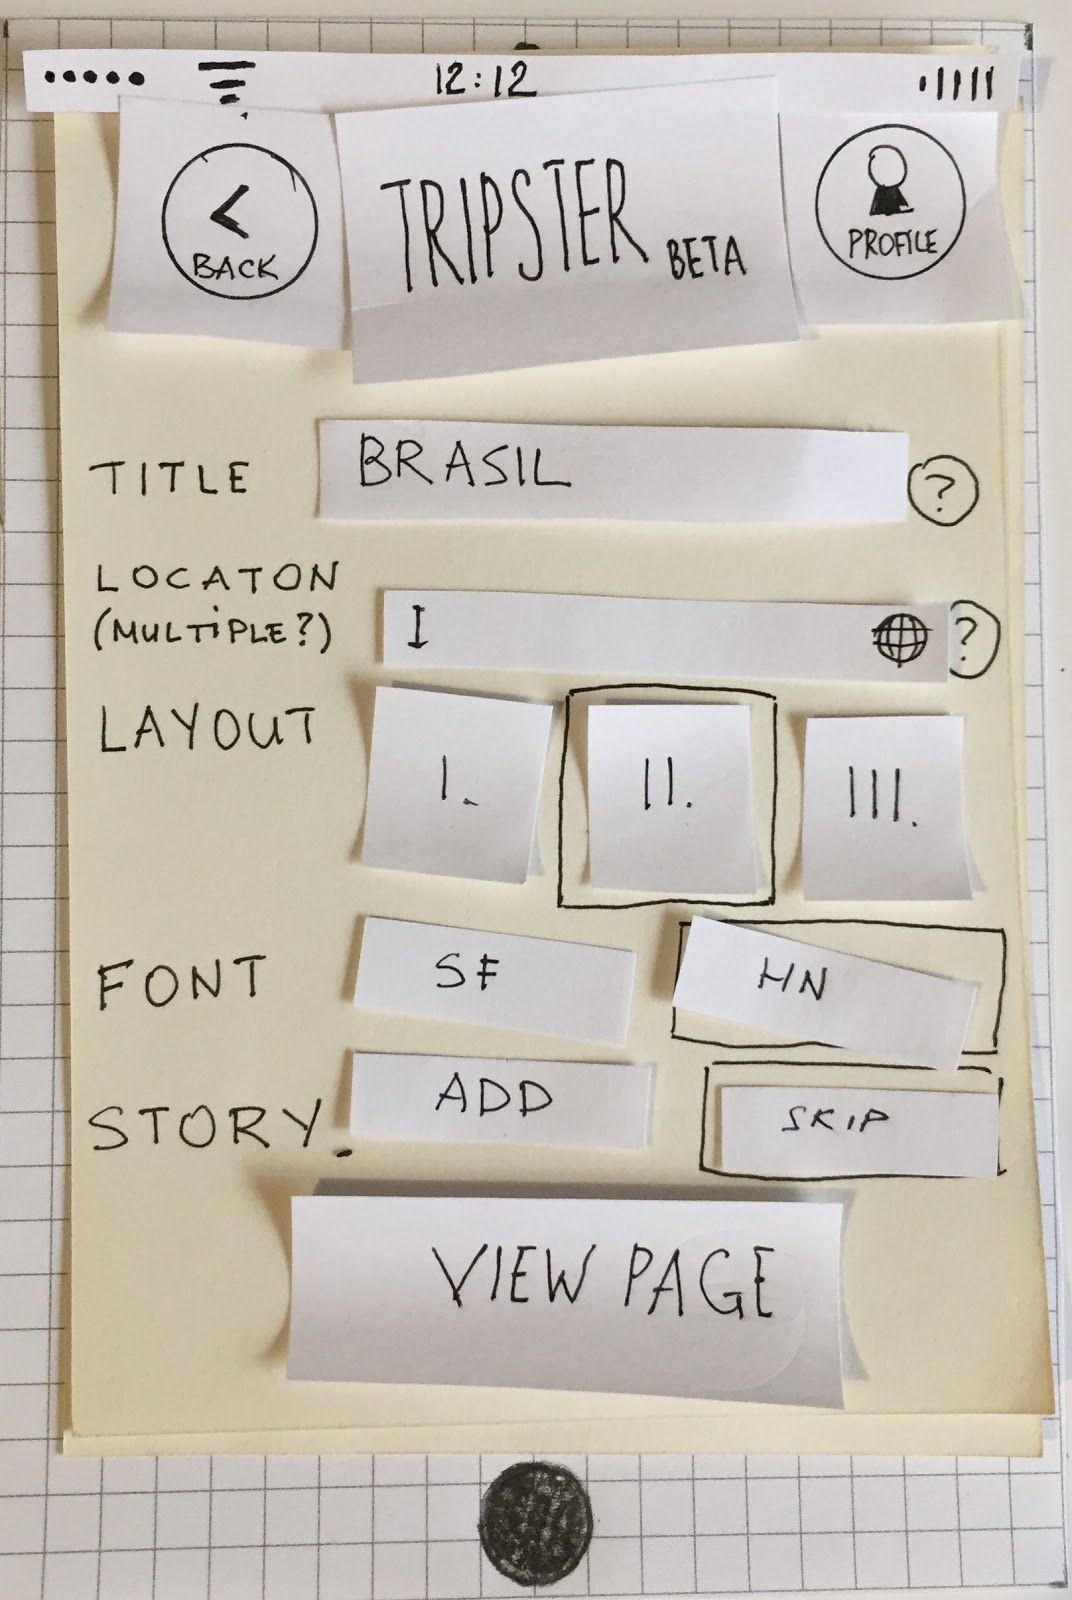 12:12
< BACK
TRIPSTER BETA
PROFILE
TITLE BRASIL ?
LOCATON
(MULTIPLE?) I ?
LAYOUT I. II. III.
FONT SF HN
STORY. ADD SKIP
VIEW PAGE